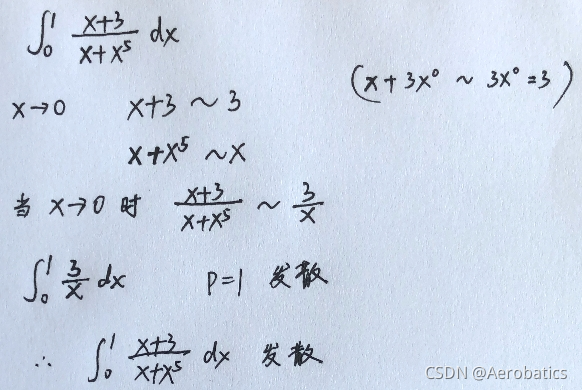 ∫₀¹ (x+3)/(x+x⁵) dx
x→0 x+3 ~ 3 (x+3x⁰ ~ 3x⁰=3)
x+x⁵ ~x
当 x→0 时 (x+3)/(x+x⁵) ~ 3/x
∫₀¹ 3/x dx P=1 发散
∴ ∫₀¹ (x+3)/(x+x⁵) dx 发散
CSDN @Aerobatics